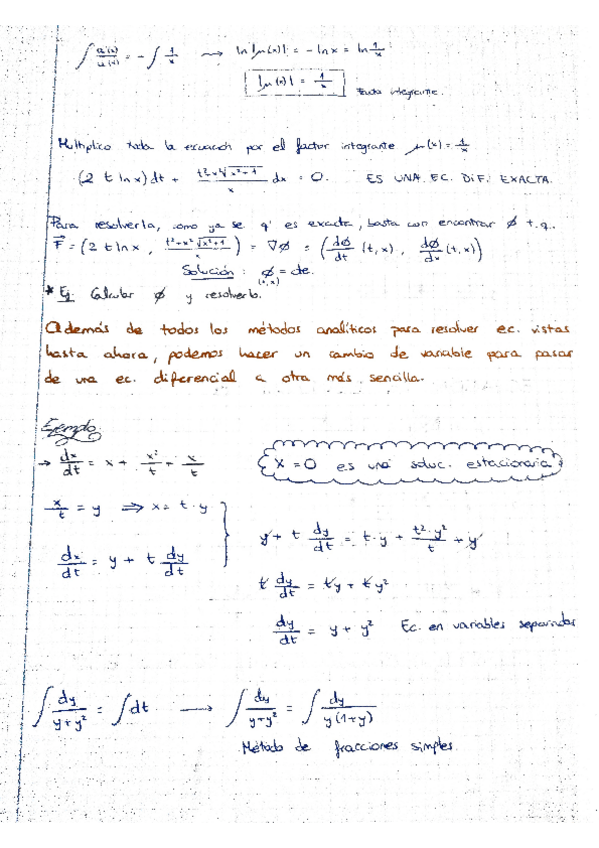 ∫ μ'(x)/μ(x) = - ∫ 1/x ⟿ ln|μ(x)| = - ln x = ln 1/x
|μ(x)| = 1/x Factor integrante.
Multiplico toda la ecuación por el factor integrante μ(x) = 1/x
(2 t ln x) dt + (t² + x² √(x²+1))/x dx = 0. ES UNA EC. DIF. EXACTA.
Para resolverla, como ya se q' es exacta, basta con encontrar ϕ t.q..
F⃗ = (2 t ln x, (t² + x² √(x²+1))/x) = ∇ϕ = (dϕ/dt (t,x), dϕ/dx (t,x))
Solución: ϕ(t,x) = cte.
* Ej: Calcular ϕ y resolverlo.
Además de todos los métodos analíticos para resolver ec. vistas
hasta ahora, podemos hacer un cambio de variable para pasar
de una ec. diferencial a otra más sencilla.
Ejemplo:
→ dx/dt = x + x²/t + x/t
X = 0 es una soluc. estacionaria
x/t = y ⇒ x = t · y
dx/dt = y + t dy/dt
y + t dy/dt = t · y + t² · y²/t + y
t dy/dt = ty + ty²
dy/dt = y + y² Ec. en variables separadas
∫ dy/(y+y²) = ∫ dt ⟶ ∫ dy/(y+y²) = ∫ dy/(y(1+y))
Método de fracciones simples.